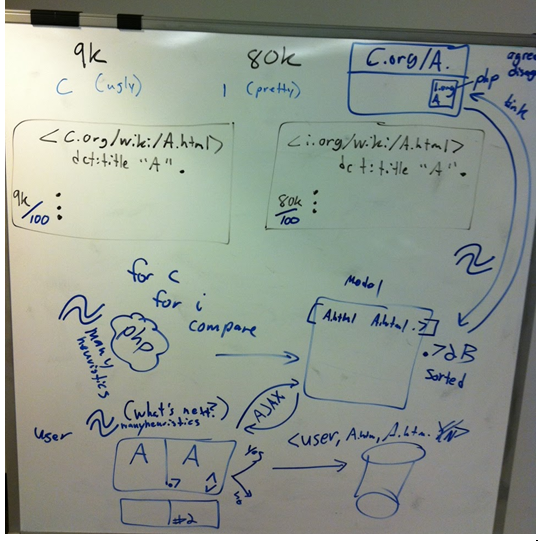 9k
80k
C.org/A.
C (ugly)
1 (pretty)
i.org
A
php
agre
disag
link
<C.org/wiki/A.html>
dct:title "A".
9k/100
<i.org/wiki/A.html>
dct:title "A".
80k/100
for c
for i
compare
php
many heuristics
Model
A.html A.html .7
.7 dB
Sorted
AJAX
user
(what's next?)
many heuristics
A A
.7
Yes
No
#2
<user, A.htm, A.htm. Y/N>